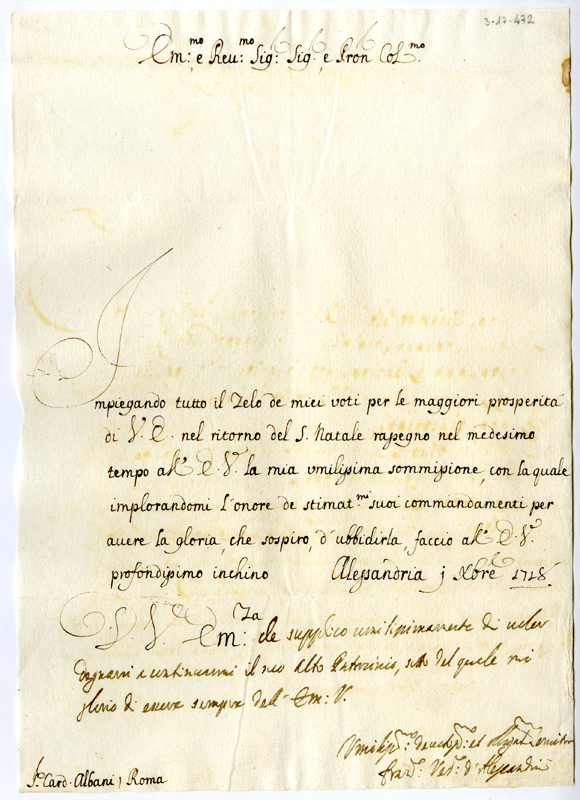 3-17-472
Em:mo e Reu:mo Sig: Sig: e Pron Col.mo
Impiegando tutto il Zelo de miei voti per le maggiori prosperità
di V. E. nel ritorno del S. Natale rassegno nel medesimo
tempo all' E. V. la mia vmilissima sommissione, con la quale
implorandomi l'onore de stimat.mi suoi commandamenti per
auere la gloria, che sospiro, d'vbbidirla, faccio all' E. V.
profondissimo inchino Alessandria j Xbre 1718
Em:za che supplico umilissimamente di voler
degnarsi continuarmi il suo alto Patrocinio, sotto del quale mi
glorio di essere sempre dell' Em: V.
Vmiliss:mo deuotiss:mo et obligat
Vesc: d'Alessandria
Card. Albani, Roma